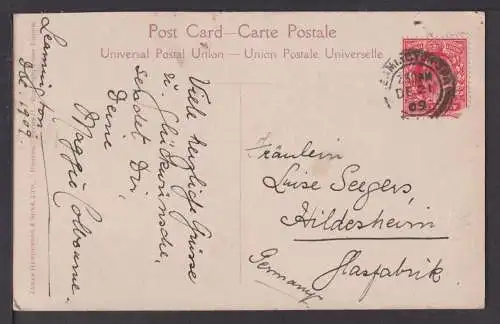 Post Card—Carte Postale
Universal Postal Union – Union Postale Universelle
Leamington
Dez. 1909.
Viele herzliche Grüsse
u. Glückwünsche,
sendet Dir,
Deine
Maggie Colbourne.
Fräulein
Luise Seegers,
Hildesheim
Glasfabrik.
Germany
AM
DE 21
09